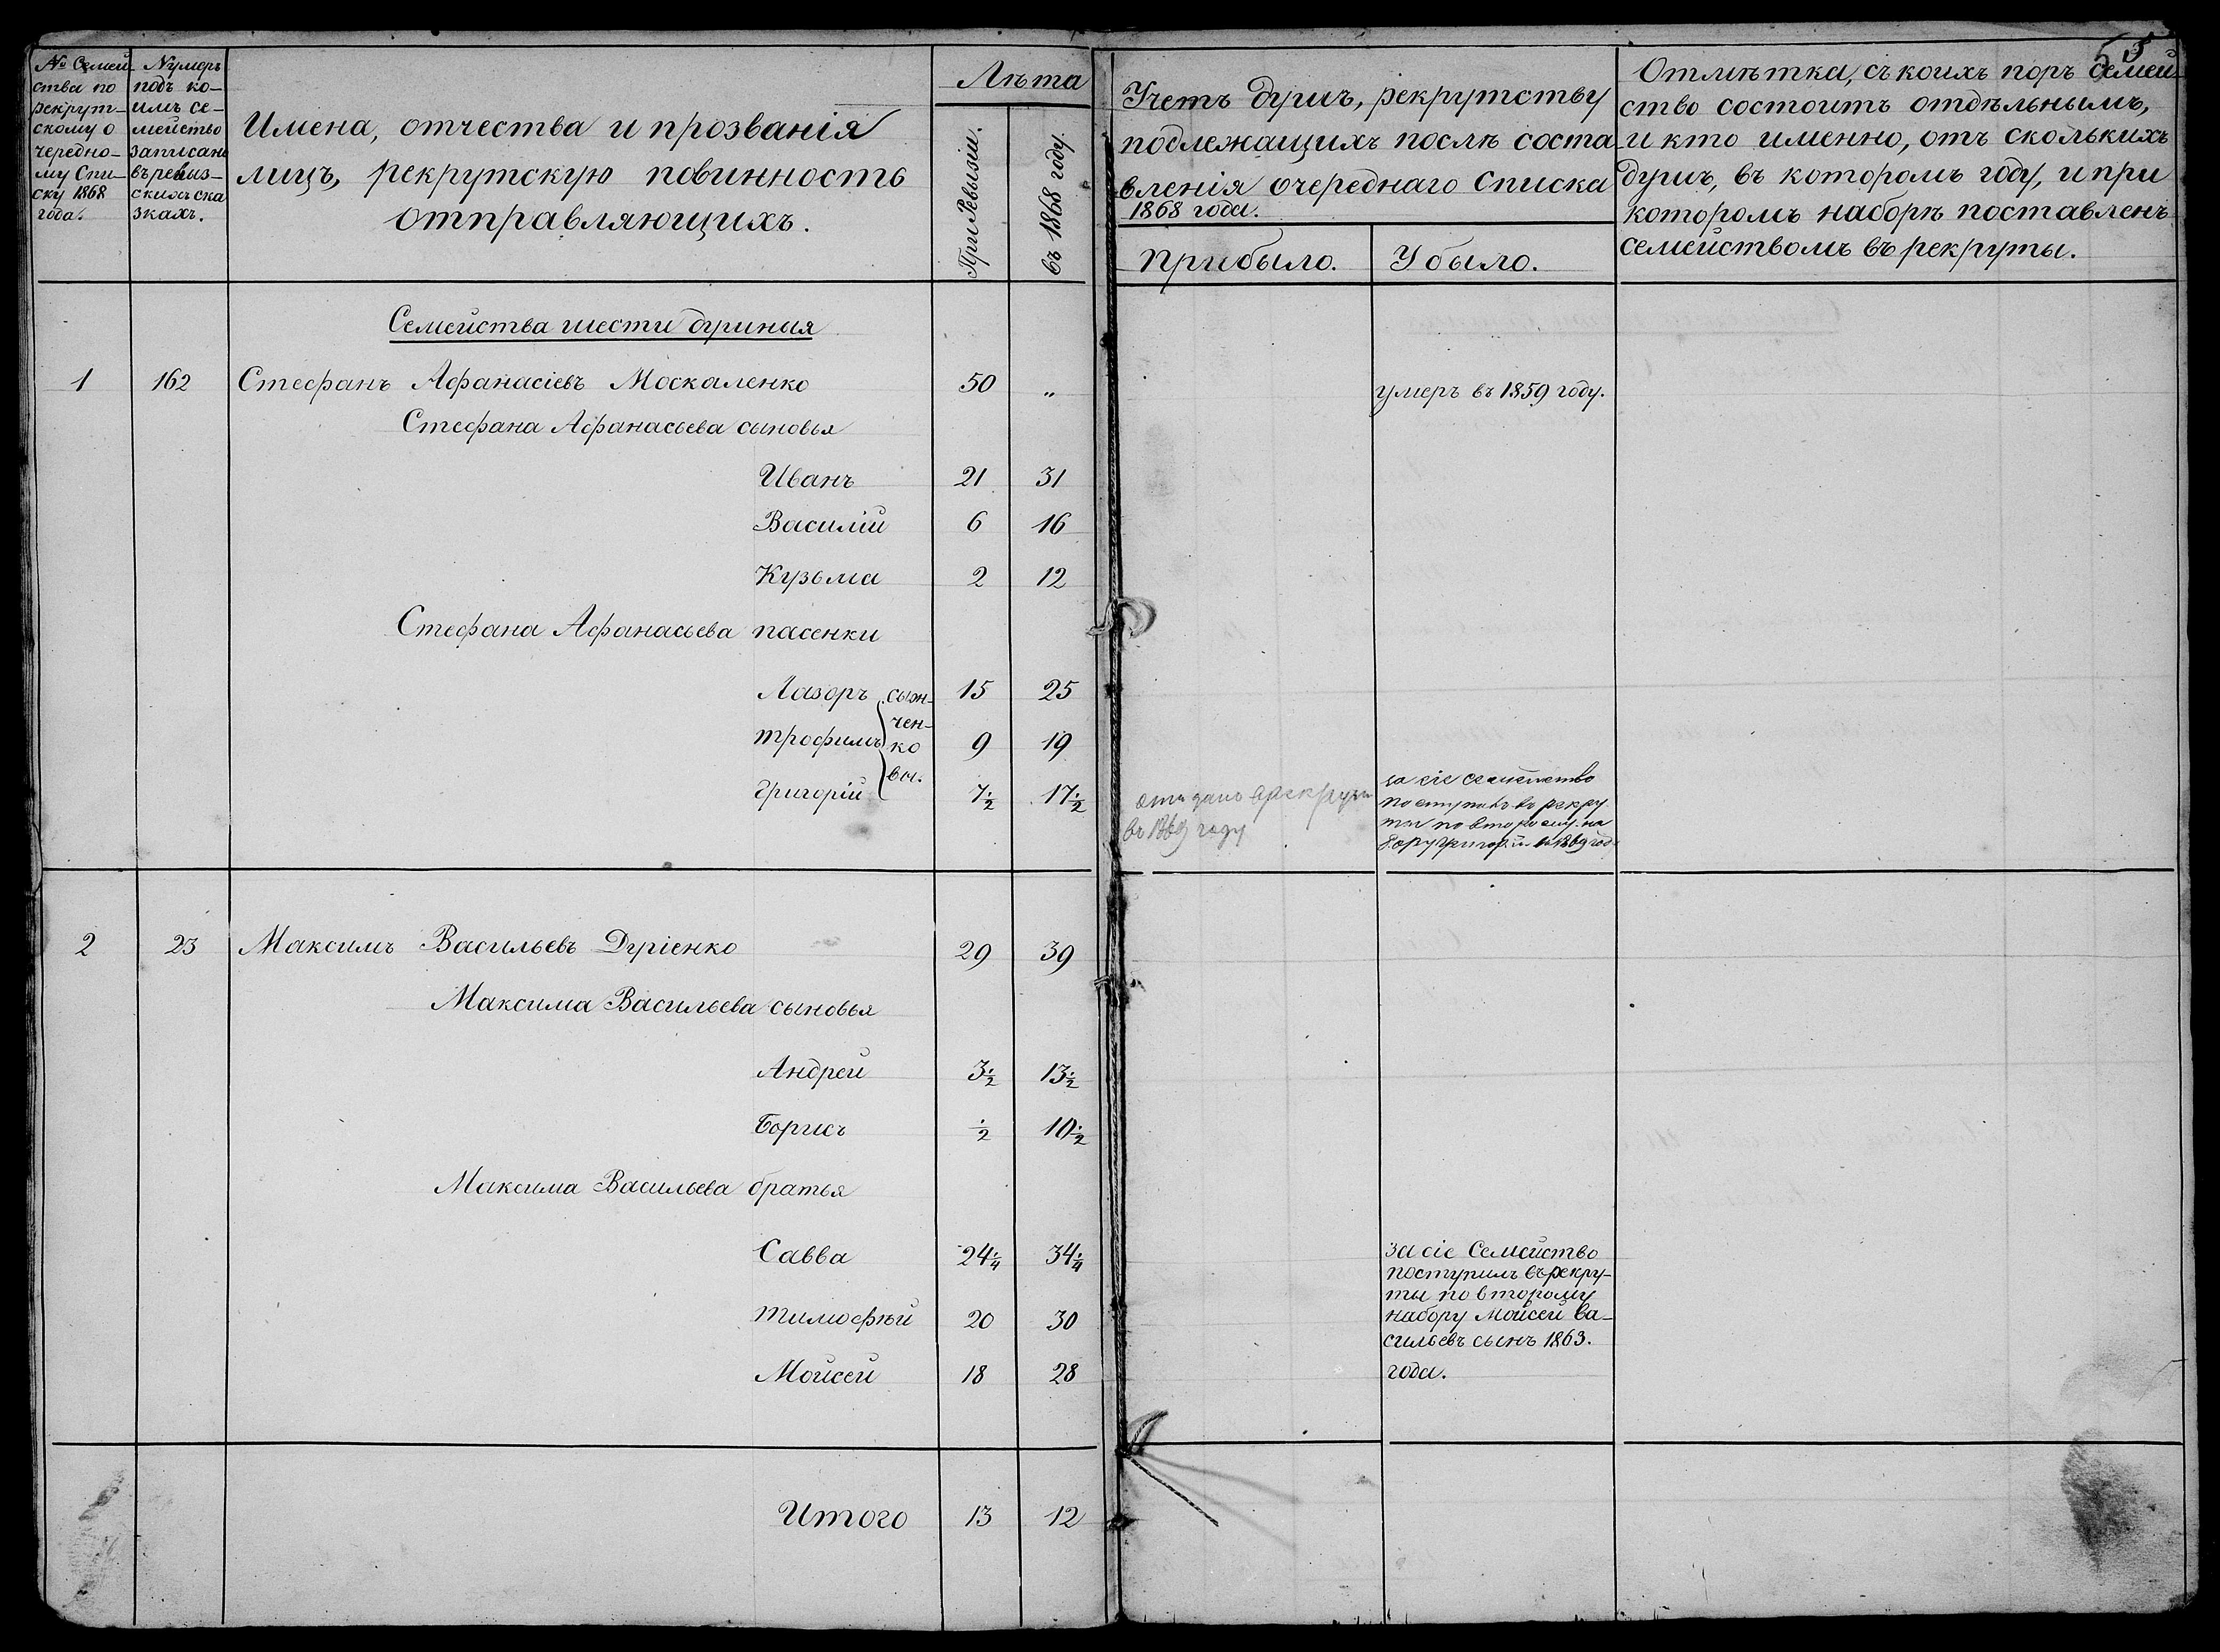 5
№ Семей-
ства по
рекрут-
скому о
чередно-
му Спи-
ску 1868
года.
Нумеръ
подъ ко-
имъ се-
мейство
записано
въ ревиз-
скихъ ска
зкахъ.
Имена, отчества и прозванія
лицъ, рекрутскую повинность
отправляющихъ.
Лѣта
При Ревизіи.
въ 1868 году.
Учетъ душъ, рекрутству
подлежащихъ послѣ соста
вленія очереднаго Списка
1868 года.
Прибыло.
Убыло.
Отмѣтка, съ коихъ поръ семей-
ство состоитъ отдѣльнымъ,
и кто именно, отъ сколькихъ
душъ, въ которомъ году, и при
которомъ наборѣ поставленъ
семействомъ въ рекруты.
Семейства шести душныя
1 162 Стефанъ Афанасіевъ Москаленко 50 „ умеръ въ 1859 году.
Стефана Афанасьева сыновья
Иванъ 21 31
Василій 6 16
Кузьма 2 12
Стефана Афанасьева пасенки
Лазоръ 15 25
Трофимъ 9 19
Григорій 7½ 17½
сыж-
чен-
ко
вы.
въ 1869 году
за сіе семейство
поступилъ въ рекру
ты по второму на
бору Григорій въ 1869 год
2 23 Максимъ Васильевъ Дуріенко 29 39
Максима Васильева сыновья
Андрей 3½ 13½
Борисъ ½ 10½
Максима Васильева братья
Савва 24¼ 34¼
Тимофѣй 20 30
Мойсей 18 28
за сіе Семейство
поступилъ въ рекру-
ты по второму
набору Мойсей Ва-
сильевъ сынъ 1863.
года.
Итого 13 12